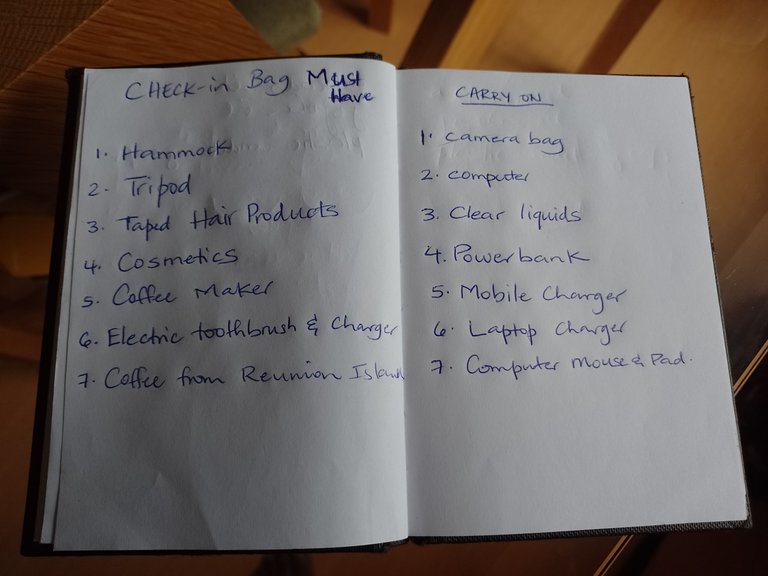 CHECK-in Bag Must
Have
1. Hammock
2. Tripod
3. Taped Hair Products
4. Cosmetics
5. Coffee Maker
6. Electric toothbrush & Charger
7. Coffee from Reunion Island
CARRY ON
1. camera bag
2. computer
3. Clear liquids
4. Powerbank
5. Mobile Charger
6. Laptop Charger
7. Computer mouse & Pad.